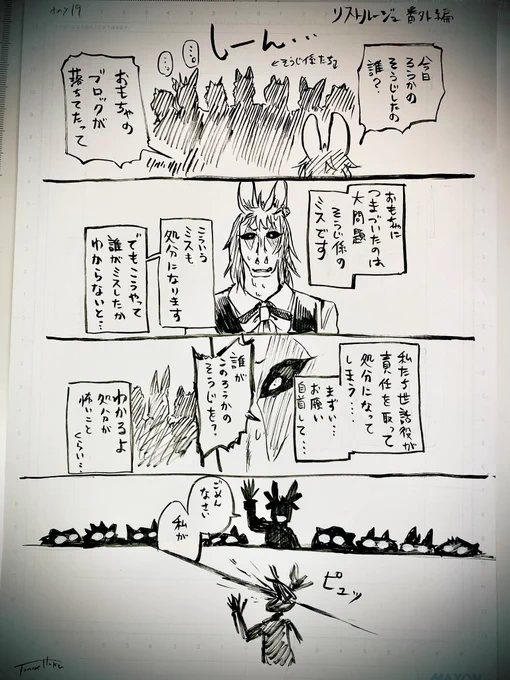 リストルージュ 番外編
しーん…
今日
ろうかの
そうじしたの
誰?
そうじ係たち
…。
…。
おもちゃの
ブロックが
落ちてたって
おもちゃに
つまづいたのは
大問題
そうじ係の
ミスです
こういう
ミスも
処分になります
でもこうやって
誰がミスしたか
わからないと…
私たち世話役が
責任を取って
処分になって
しまう…
まずい…
お願い
自首して…
誰が
このろうかの
そうじを?
わかるよ
処分が
怖いこと
くらい…
ごめん
なさい
私が
ピュッ